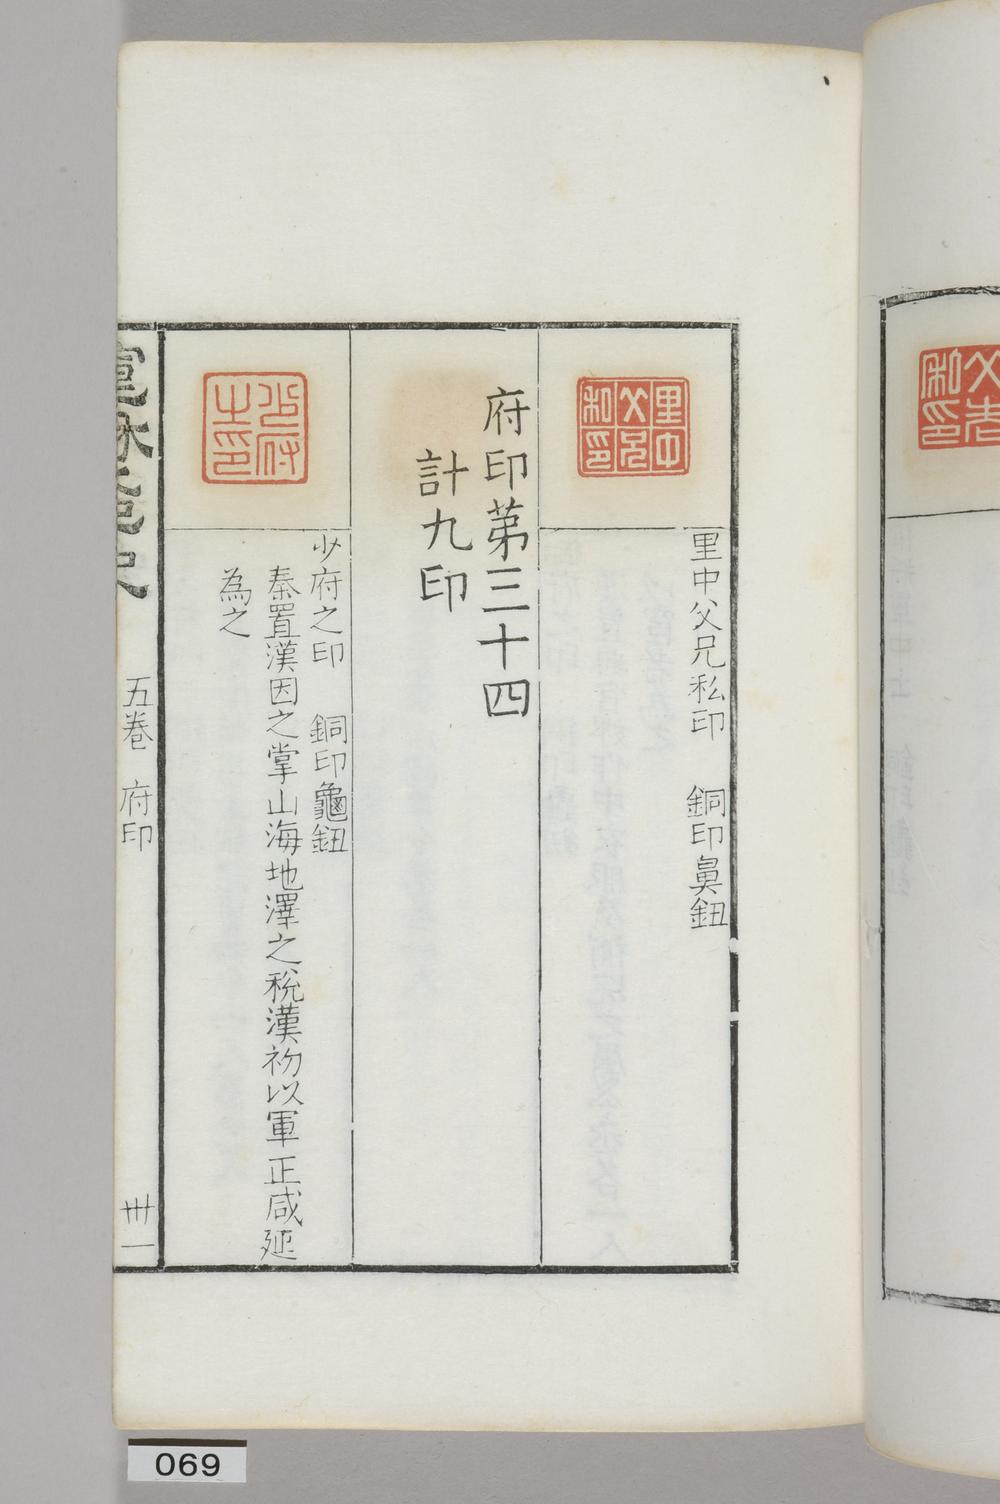 里中父兄私印
里中父兄私印　銅印鼻鈕
府印苐三十四
計九印
少府之印
少府之印　銅印龜鈕
秦置漢因之掌山海地澤之稅漢初以軍正咸延
為之
五巻　府印
卅一
069